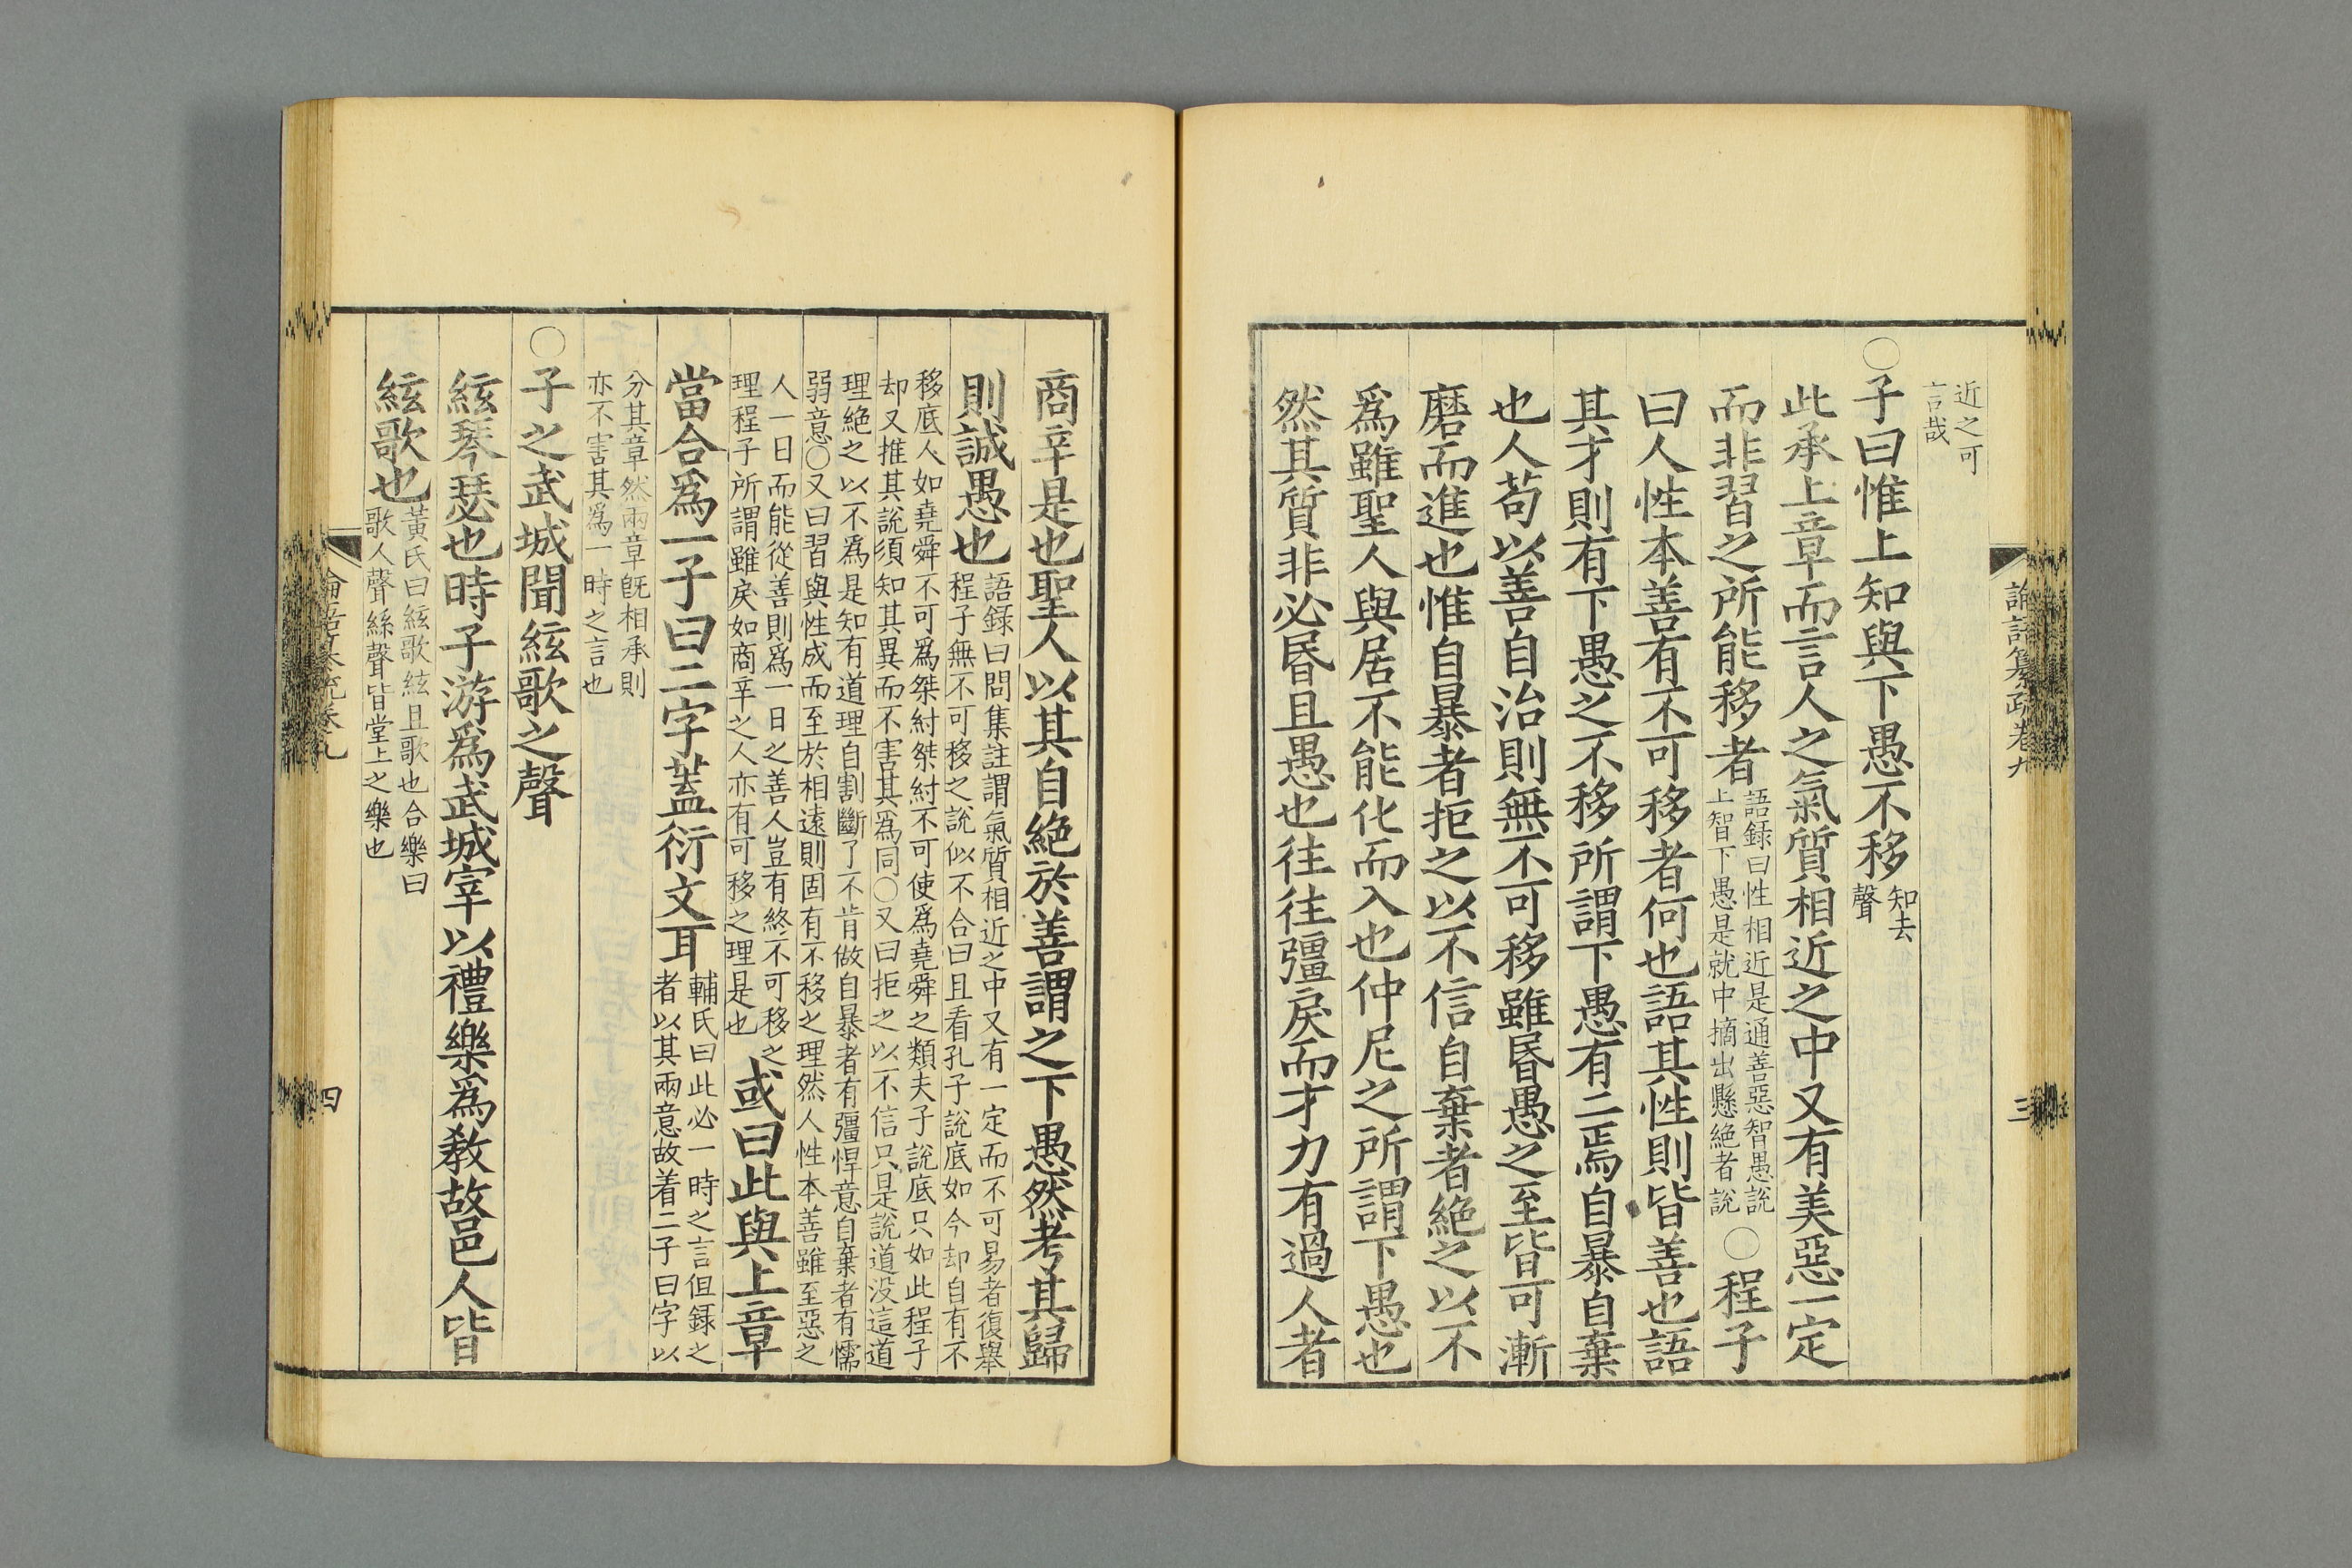 近之可
言哉
○子曰惟上知與下愚不移
知去
聲
此承上章而言人之氣質相近之中又有美惡一定
而非習之所能移者
語録曰性相近是通善惡智愚說
上智下愚是就中摘出懸絶者說
○程子
曰人性本善有不可移者何也語其性則皆善也語
其才則有下愚之不移所謂下愚有二焉自暴自棄
也人苟以善自治則無不可移雖昬愚之至皆可漸
磨而進也惟自暴者拒之以不信自棄者絶之以不
爲雖聖人與居不能化而入也仲尼之所謂下愚也
然其質非必昬且愚也往往彊戾而才力有過人者
論語纂疏卷九
三
商辛是也聖人以其自絶於善謂之下愚然考其歸
則誠愚也
語録曰問集註謂氣質相近之中又有一定而不可易者復舉
程子無不可移之說似不合曰且看孔子說底如今却自有不
移底人如堯舜不可爲桀紂桀紂不可使爲堯舜之類夫子說底只如此程子
却又推其說須知其異而不害其爲同○又曰拒之以不信只是說道没這道
理絶之以不爲是知有道理自割斷了不肯做自暴者有彊悍意自棄者有懦
弱意○又曰習與性成而至於相遠則固有不移之理然人性本善雖至惡之
人一日而能從善則爲一日之善人豈有終不可移之
理程子所謂雖戾如商辛之人亦有可移之理是也
或曰此與上章
當合爲一子曰二字蓋衍文耳
輔氏曰此必一時之言但録之
者以其兩意故着二子曰字以
分其章然兩章旣相承則
亦不害其爲一時之言也
○子之武城聞絃歌之聲
絃琴瑟也時子游爲武城宰以禮樂爲敎故邑人皆
絃歌也
黃氏曰絃歌絃且歌也合樂曰
歌人聲絲聲皆堂上之樂也
四